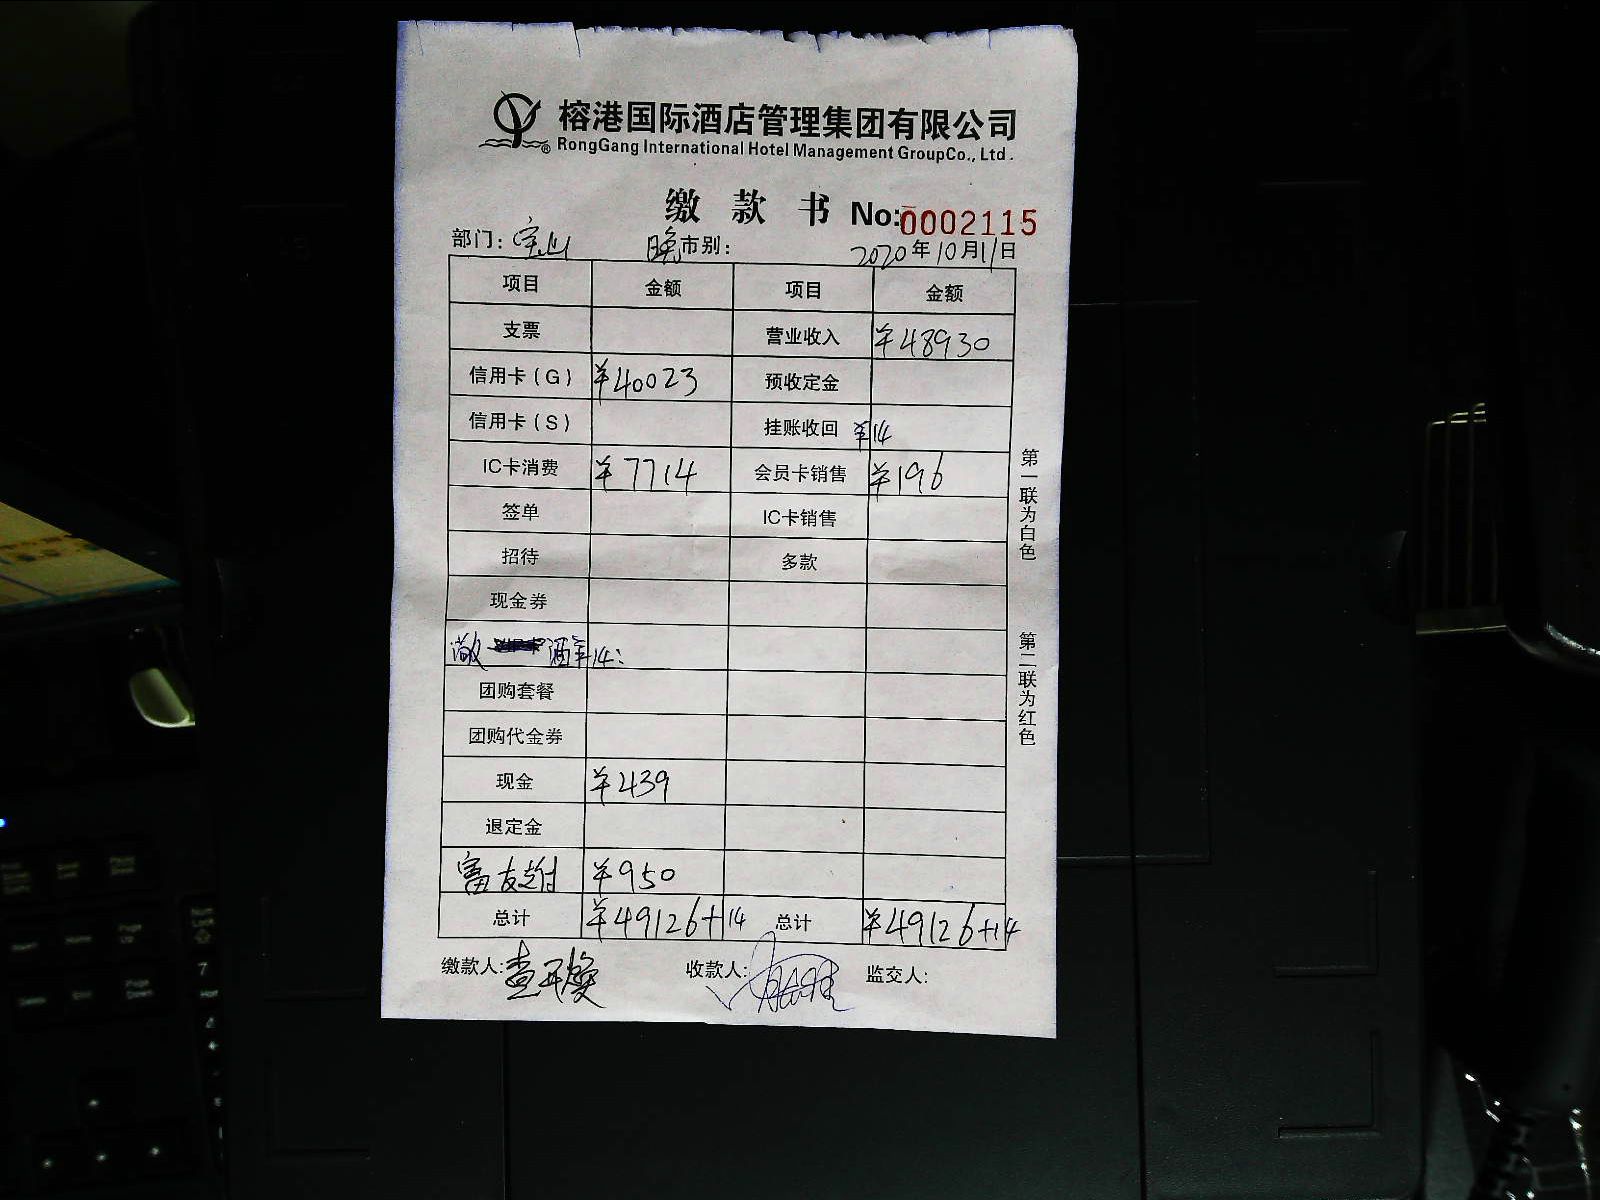 榕港国际酒店管理集团有限公司
RongGang International Hotel Management GroupCo., Ltd.
缴款书 No:0002115
部门: 宝山 晚市别: 2020年10月11日
项目 金额 项目 金额
支票 营业收入 ¥48930
信用卡(G) ¥40023 预收定金
信用卡(S) 挂账收回 ¥14
IC卡消费 ¥7714 会员卡销售 ¥196
签单 IC卡销售
招待 多款
现金券
酒 ¥14:
团购套餐
团购代金券
现金 ¥439
退定金
富友支付 ¥950
总计 ¥49126+14 总计 ¥49126+14
缴款人: 收款人: 监交人:
第一联为白色
第二联为红色